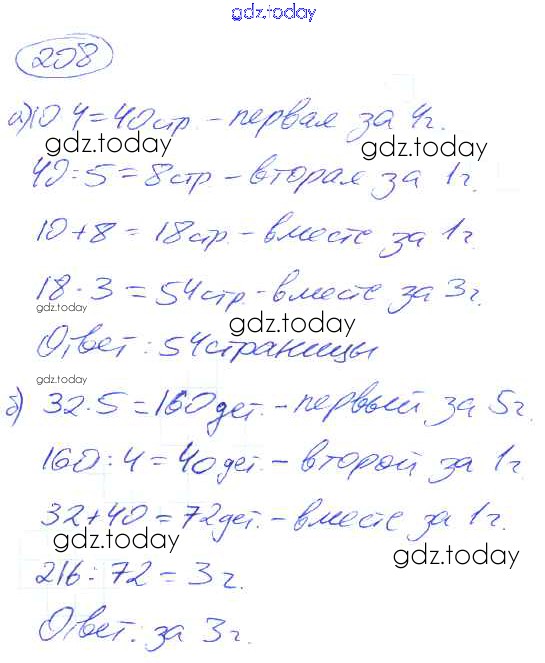 gdz.today
208
а) 10 4 = 40 стр. - первая за 4 г.
gdz.today gdz.today
40 : 5 = 8 стр - вторая за 1 г.
10 + 8 = 18 стр. - вместе за 1 г.
18 · 3 = 54 стр. - вместе за 3 г.
gdz.today gdz.today
Ответ : 54 страницы
gdz.today
б) 32 · 5 = 160 дет. - первый за 5 г.
160 : 4 = 40 дет. - второй за 1 г.
32 + 40 = 72 дет. - вместе за 1 г.
gdz.today gdz.today
216 : 72 = 3 г.
Ответ : за 3 г.